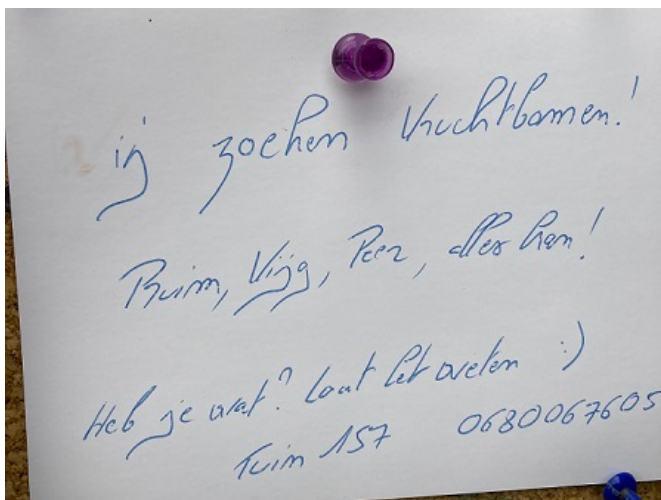 ij zoeken Vruchtbomen!
Pruim, Vijg, Peer, alles kan!
Heb je wat? Laat het weten :)
Tuin 157 0680067605